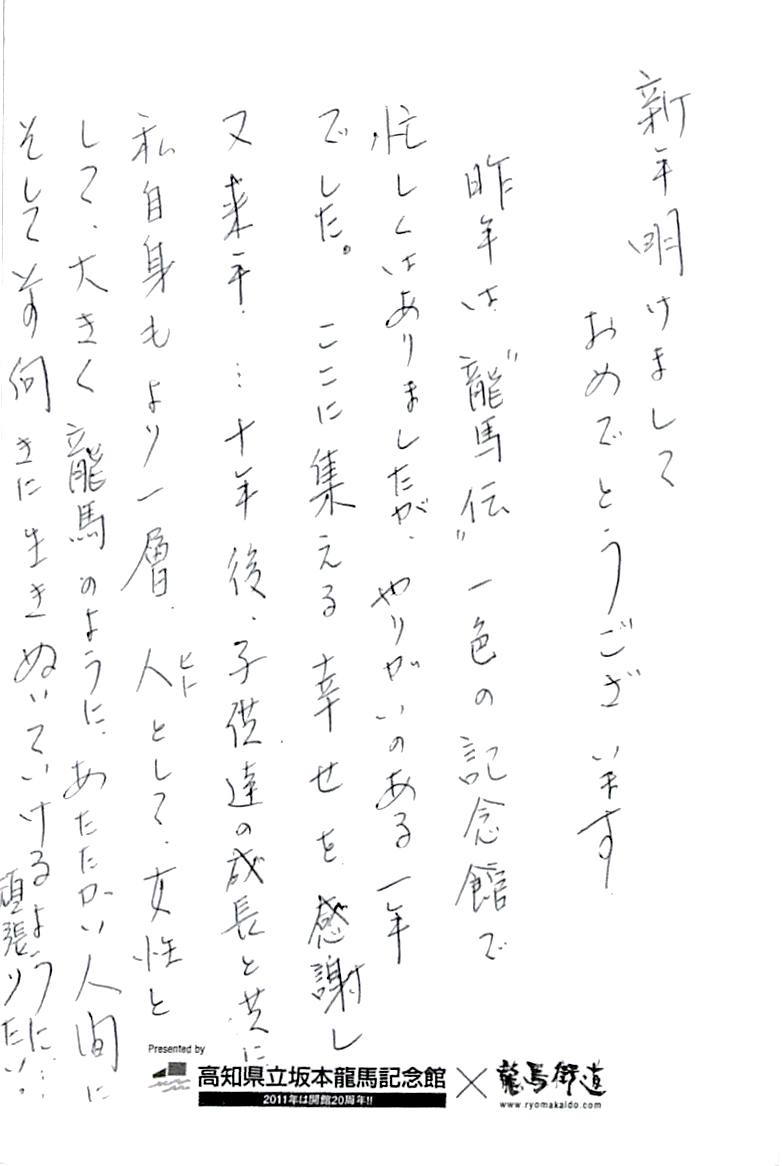 新年明けまして
おめでとうございます
昨年は"龍馬伝"一色の記念館で
忙しくはありましたが、やりがいのある一年
でした。ここに集える幸せを感謝し
又来年…十年後、子供達の成長と共に
私自身もより一層、人として、女性と
ヒト
して、大きく龍馬のように、あたたかい人間に
そして前向きに生きぬいていけるように…
頑張りたい。
Presented by
高知県立坂本龍馬記念館×龍馬街道
2011年は開館20周年!!
www.ryomakaido.com